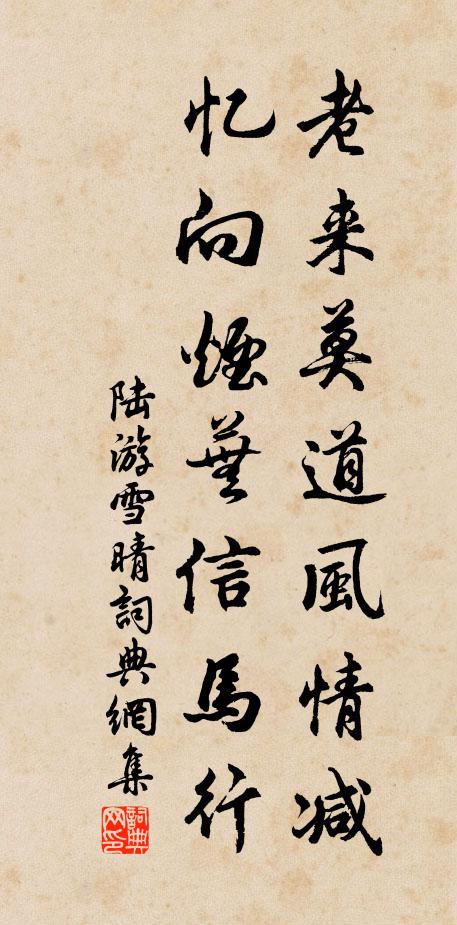 老来莫道風情减
忆向煙蕪信馬行
陆游雪晴詞典網集
詞典网印